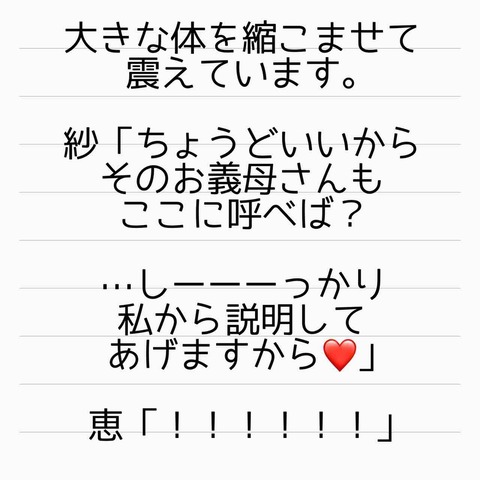 大きな体を縮こませて
震えています。
紗「ちょうどいいから
そのお義母さんも
ここに呼べば？
…しーーーっかり
私から説明して
あげますから❤️」
恵「！！！！！！」